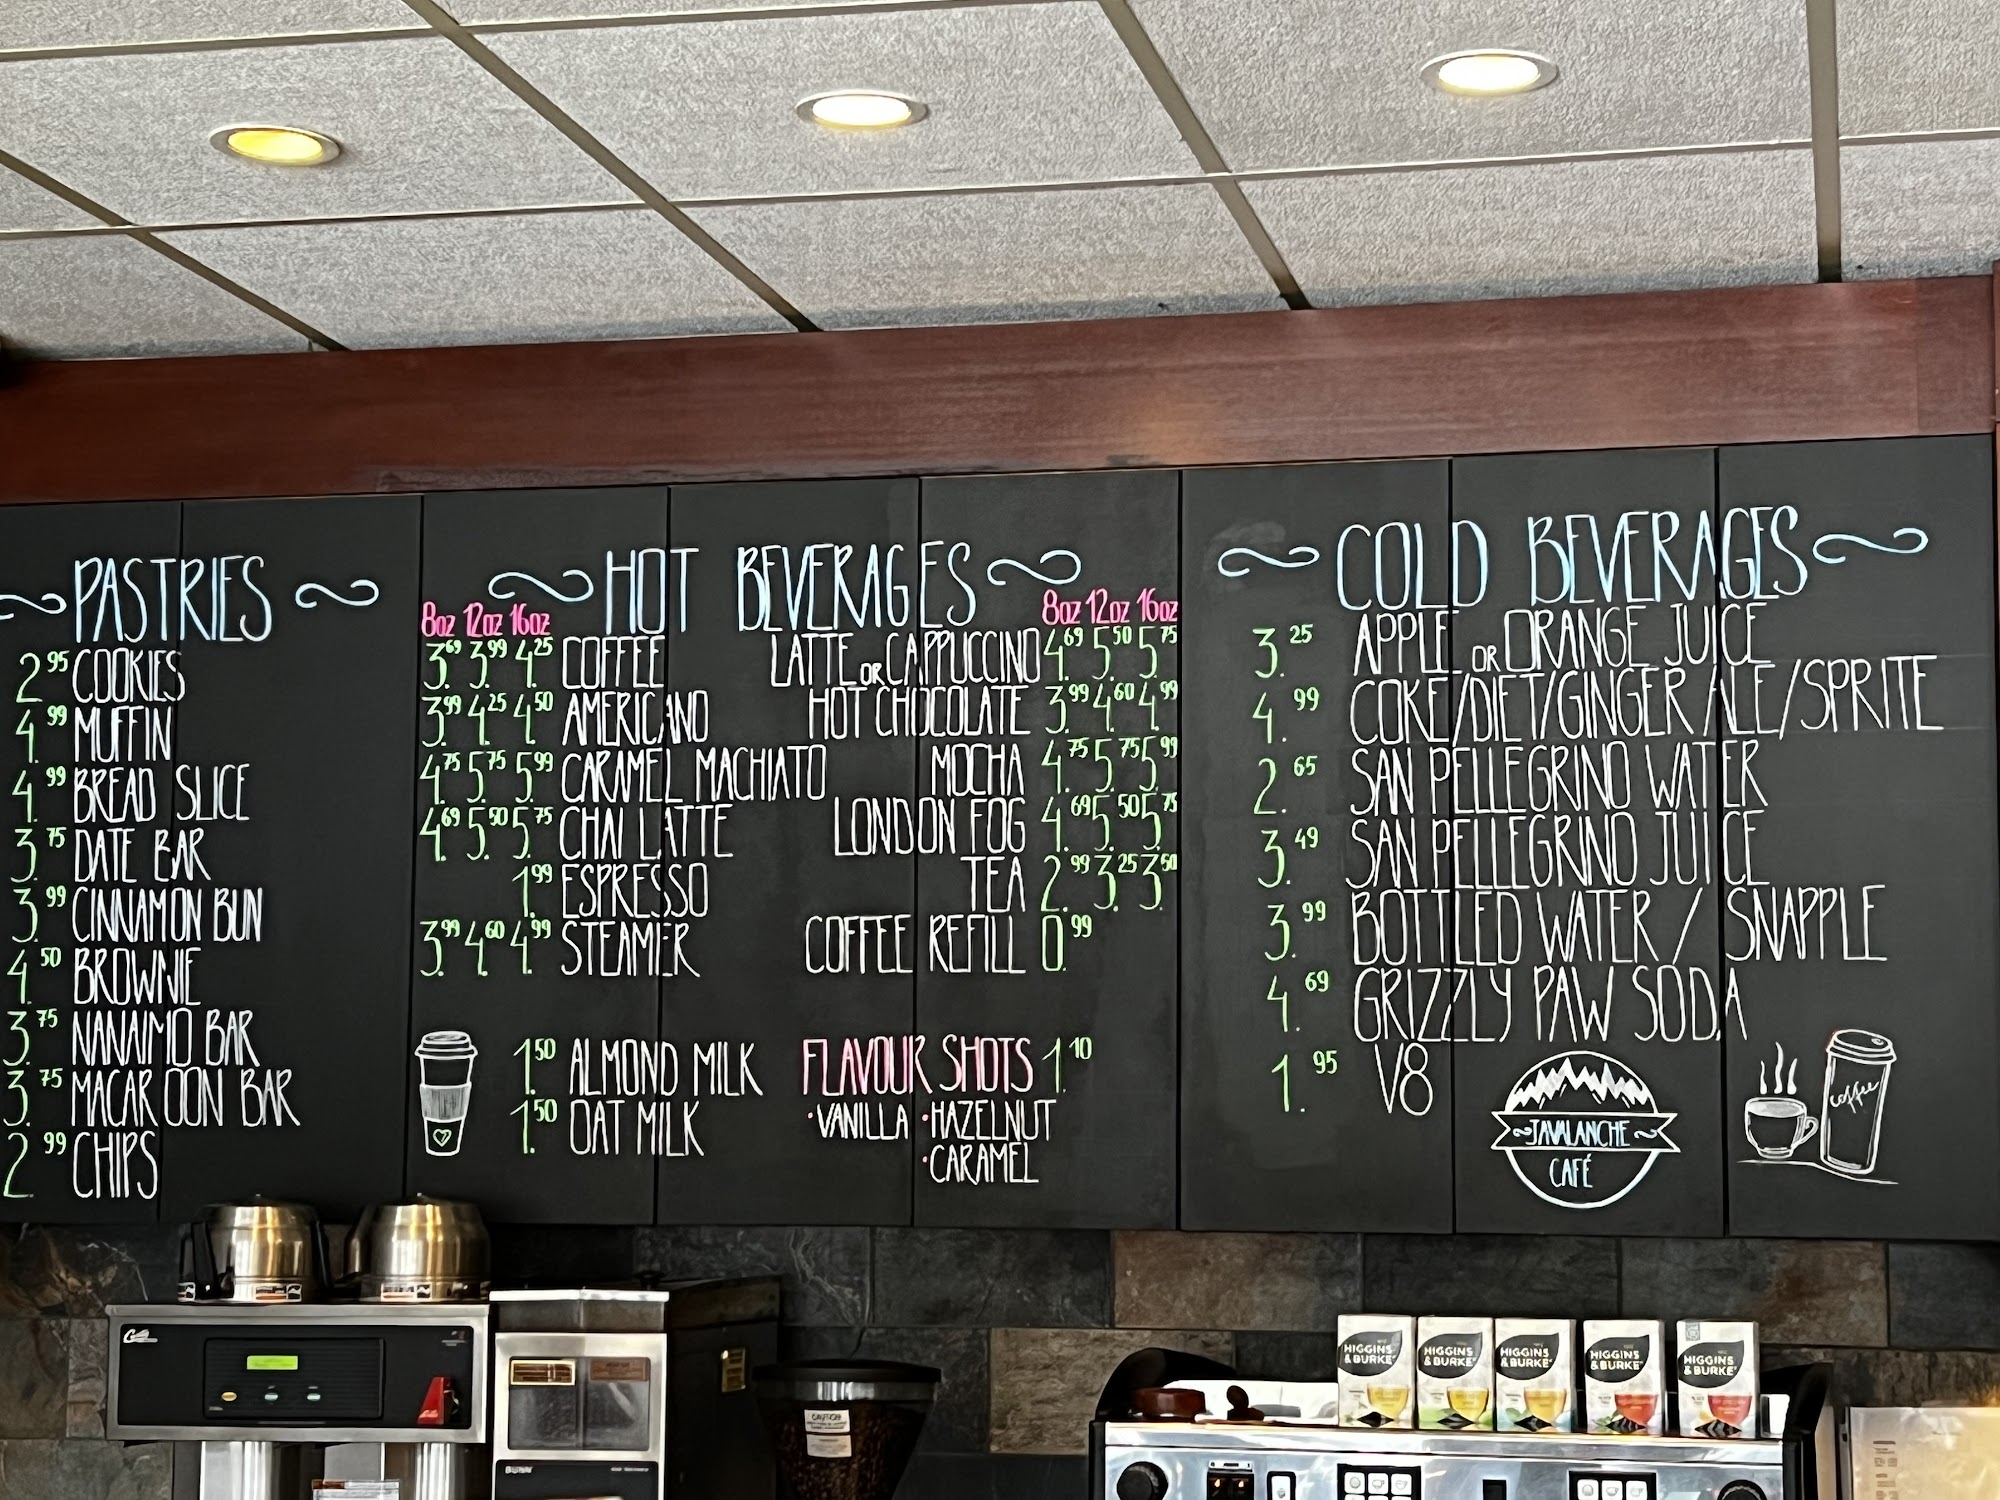 PASTRIES
2.95 COOKIES
4.99 MUFFIN
4.99 BREAD SLICE
3.75 DATE BAR
3.99 CINNAMON BUN
4.50 BROWNIE
3.75 NANAIMO BAR
3.75 MACAROON BAR
2.99 CHIPS
HOT BEVERAGES
8oz 12oz 16oz
3.69 3.99 4.25 COFFEE
3.99 4.25 4.50 AMERICANO
4.75 5.75 5.99 CARAMEL MACHIATO
4.69 5.50 5.75 CHAI LATTE
1.99 ESPRESSO
3.99 4.60 4.99 STEAMER
1.50 ALMOND MILK
1.50 OAT MILK
8oz 12oz 16oz
LATTE OR CAPPUCCINO 4.69 5.50 5.75
HOT CHOCOLATE 3.99 4.60 4.99
MOCHA 4.75 5.75 5.99
LONDON FOG 4.69 5.50 5.75
TEA 2.99 3.25 3.50
COFFEE REFILL 0.99
FLAVOUR SHOTS 1.10
·VANILLA ·HAZELNUT
·CARAMEL
COLD BEVERAGES
3.25 APPLE OR ORANGE JUICE
4.99 COKE/DIET/GINGER ALE/SPRITE
2.65 SAN PELLEGRINO WATER
3.49 SAN PELLEGRINO JUICE
3.99 BOTTLED WATER / SNAPPLE
4.69 GRIZZLY PAW SODA
1.95 V8
JAVALANCHE
CAFÉ
coffee
HIGGINS
& BURKE
HIGGINS
& BURKE
HIGGINS
& BURKE
HIGGINS
& BURKE
HIGGINS
& BURKE
CAUTION
BUNN